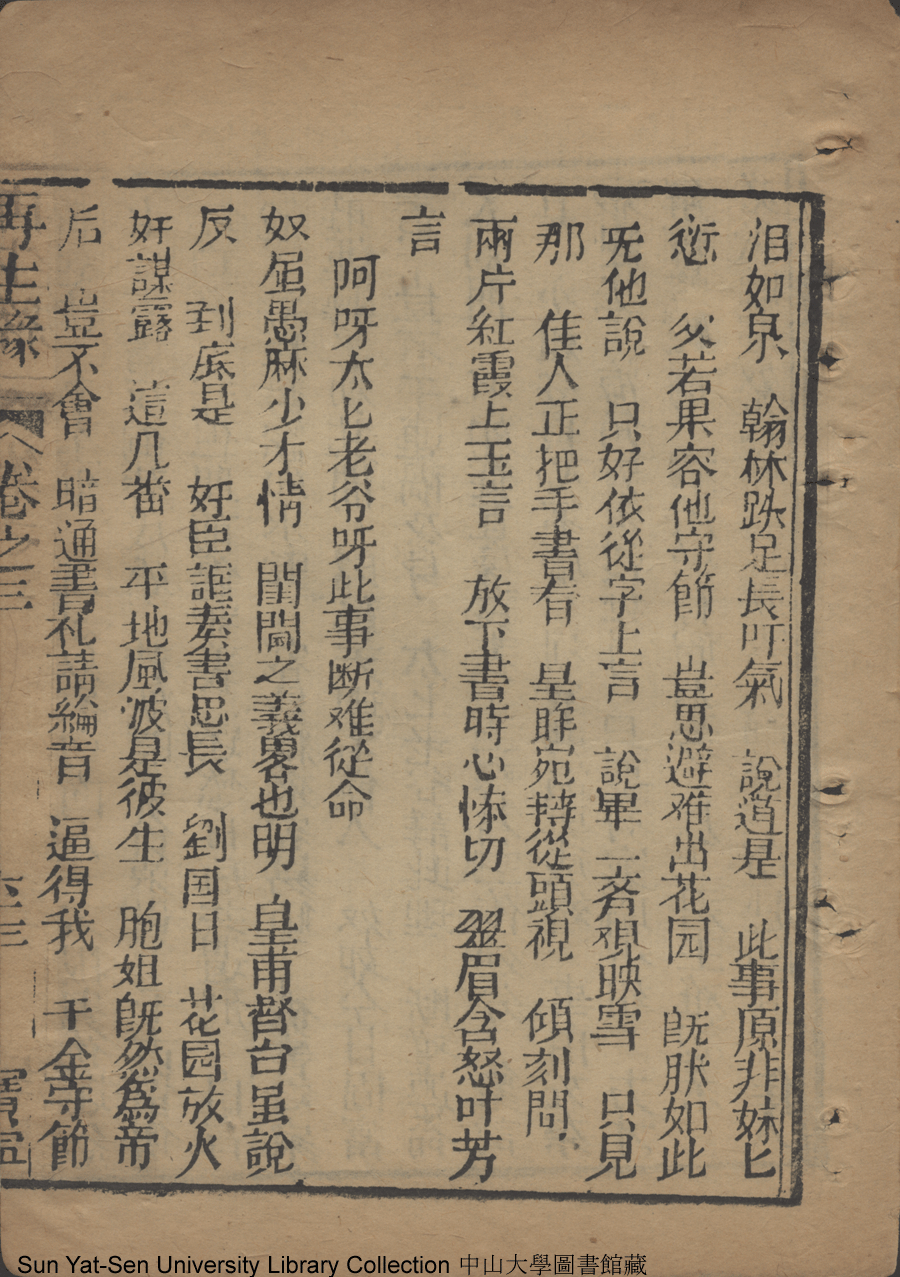 泪如泉 翰林跌足長吁氣 說道是 此事原非妹匕
愆 父若果容他守節 豈思避难出花园 既肰如此
旡他說 只好依從字上言 說畢一斉覌映雪 只見
那 佳人正把手書看 星眸宛转從頭視 傾刻間
兩片紅霞上玉言 放下書時心惨切 翠眉含怒吐芳
言
阿呀太匕老爷呀此事断难從命
奴虽愚麻少才情 閨閫之義畧也明 皇甫督台虽說
反 到底是 奸臣誑奏害忠良 劉国日 花园放火
奸謀露 這几畨 平地風波是彼生 胞姐既然為帝
后 豈不會 暗通書礼請綸音 逼得我 千金守節
再生緣 卷之三 六三 寳寍
Sun Yat-Sen University Library Collection 中山大學圖書館藏